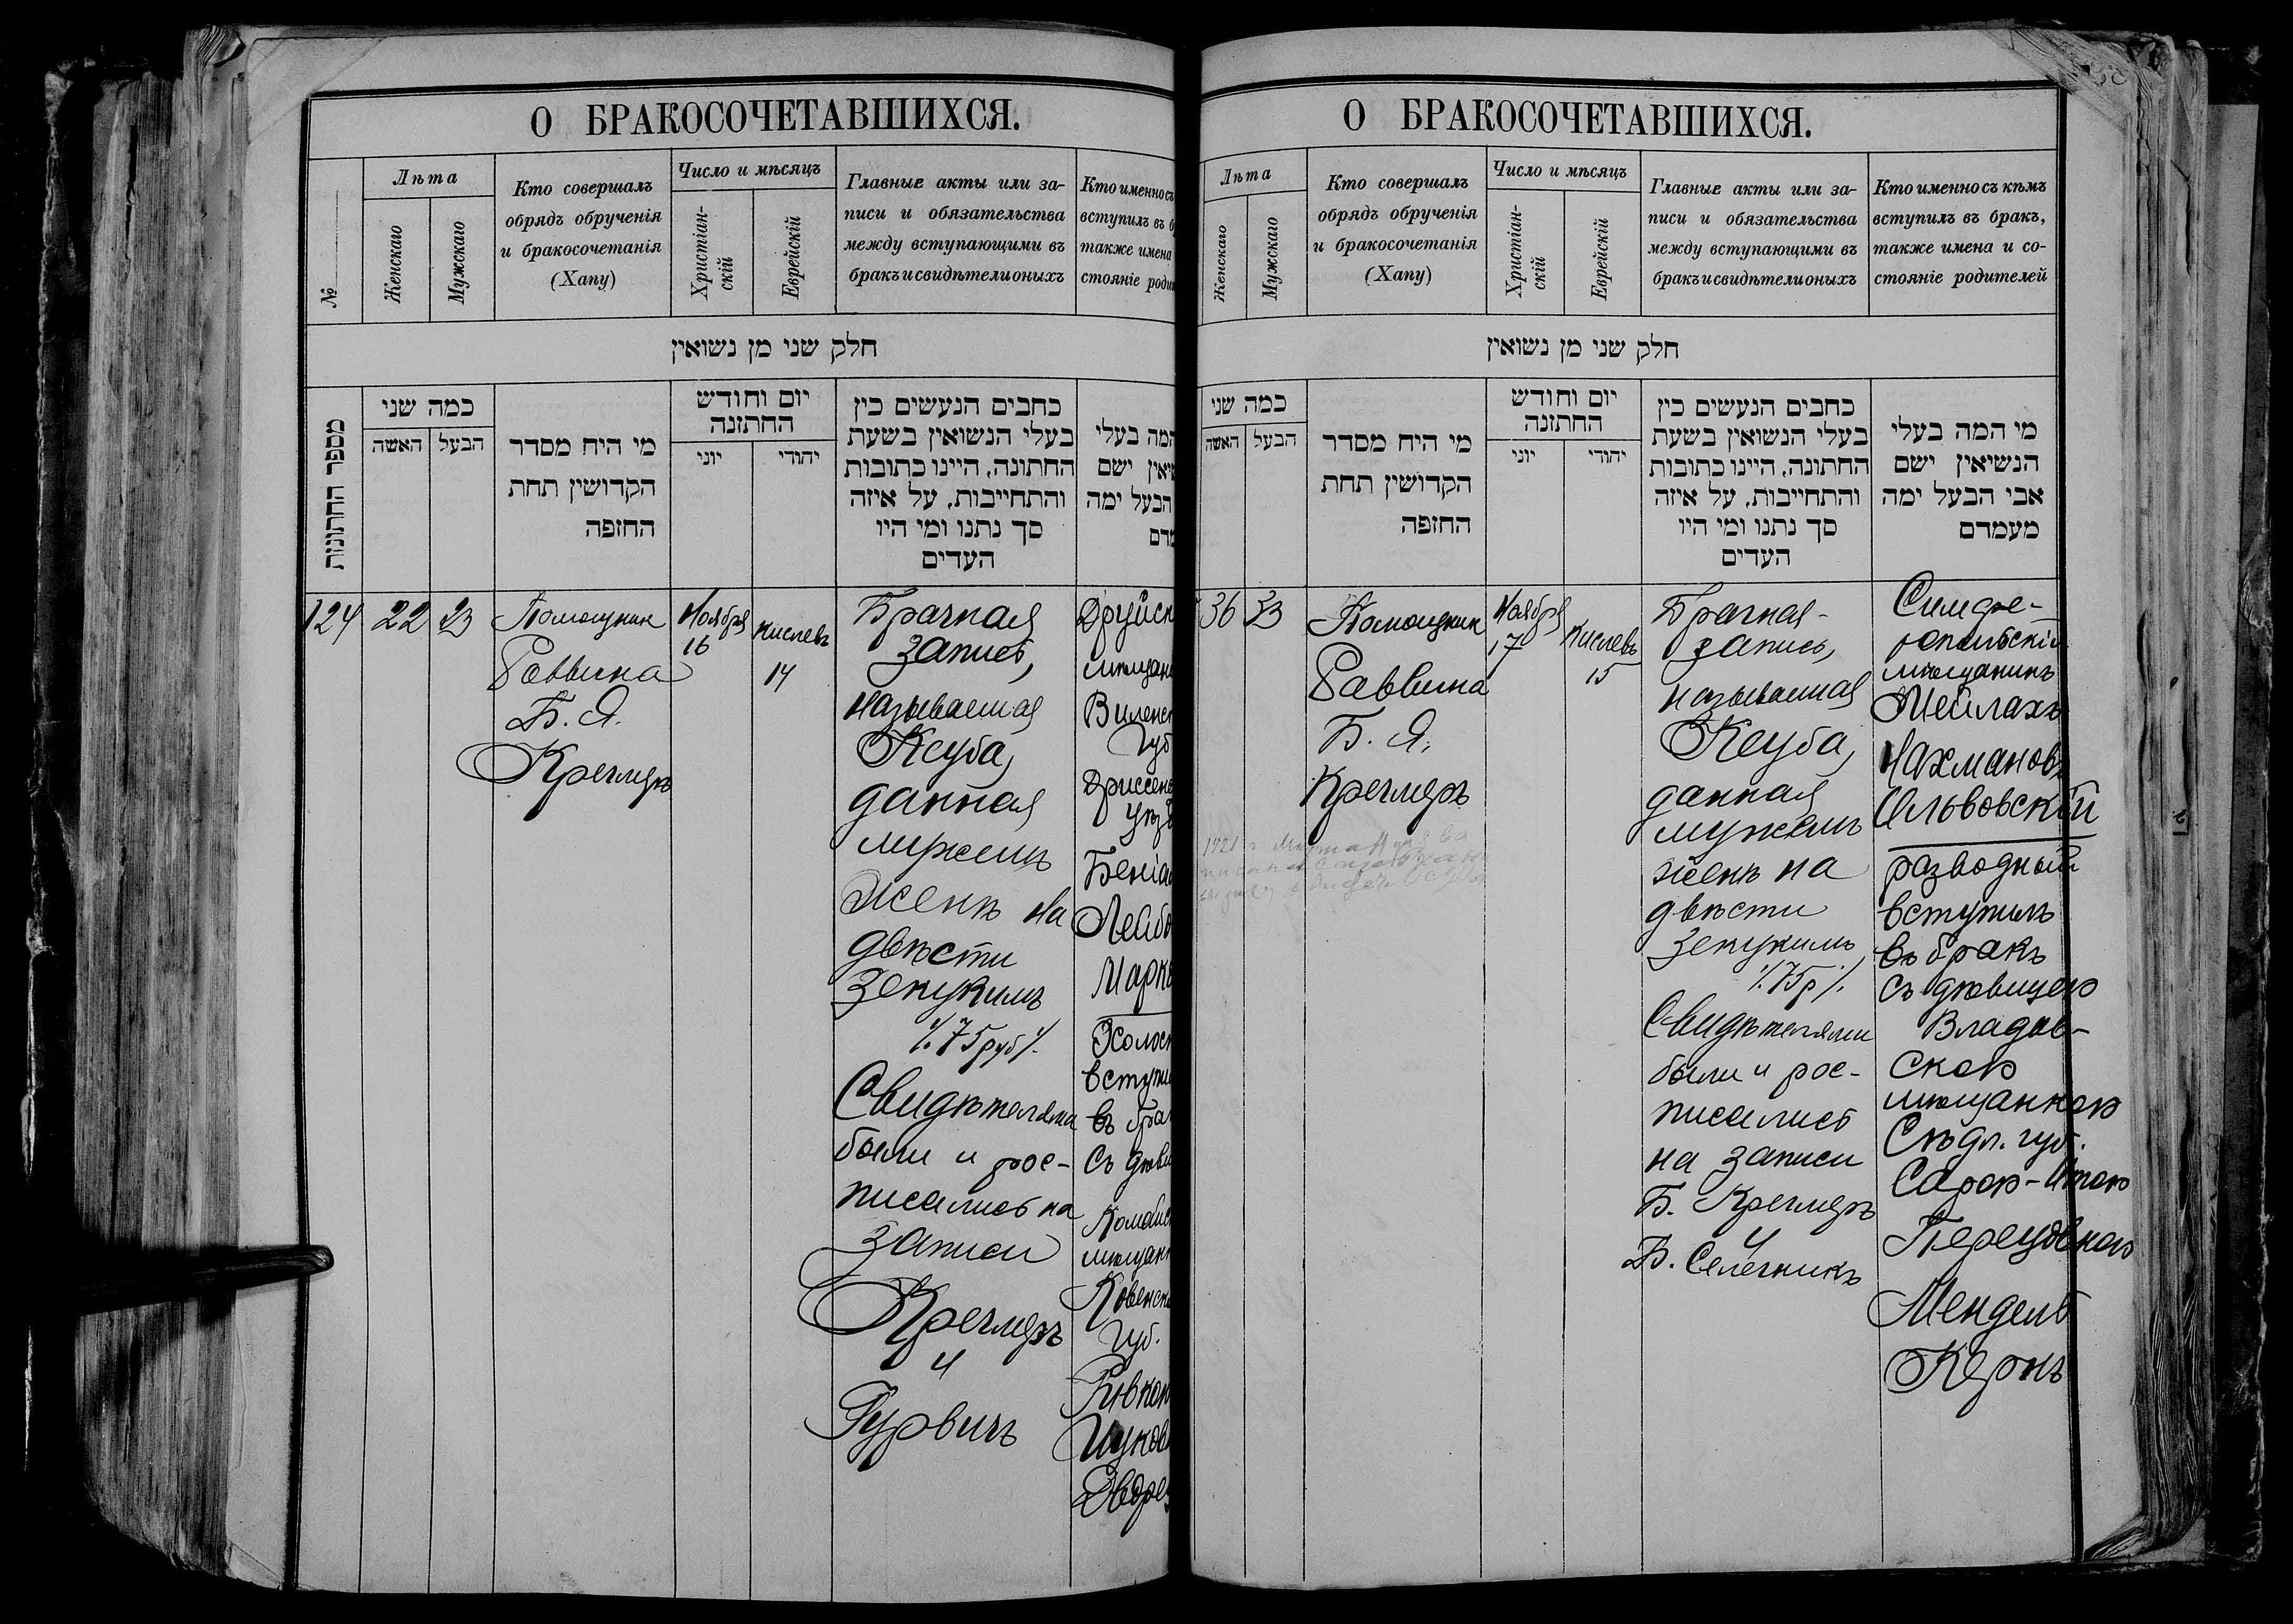 О БРАКОСОЧЕТАВШИХСЯ.
№
Лѣта
Женскаго
Мужскаго
Кто совершалъ
обрядъ обрученія
и бракосочетанія
(Хапу)
Число и мѣсяцъ
Христіан-
скій
Еврейскій
Главные акты или за-
писи и обязательства
между вступающими въ
бракъ и свидѣтели оныхъ
Кто именно съ
вступилъ въ б
также имена
стояніе роди
חלק שני מן נשואין
מספר החתונות
כמה שני
האשה
הבעל
מי היח מסדר
הקדושין תחת
החופה
יום וחודש
החתונה
יוני
יהודי
כתבים הנעשים בין
בעלי הנשואין בשעת
החתונה, היינו כתובות
והתחייבות, על איזה
סך נתנו ומי היו
העדים
המה בעלי
שיאין ישם
הבעל ימה
מדם
124
22
23
Помощникъ
Раввина
Б. Я.
Кречмеръ
Ноября
16
Кислевъ
14
Брачная
запись,
называемая
Ксуба,
данная
мужемъ
женѣ на
двѣсти
зекукимъ
75 руб
Свидѣтелями
были и рос-
писались на
записи
Кречмеръ
и
Гурвичъ
Друйск
мѣщан
Виленск
губ
Дриссенс
уѣз
Беніа
Лейбо
Марк
Холос
вступи
въ бра
съ дѣви
мѣщанк
Ковенск
губ.
Ривкой
О БРАКОСОЧЕТАВШИХСЯ.
Лѣта
Женскаго
Мужскаго
Кто совершалъ
обрядъ обрученія
и бракосочетанія
(Хапу)
Число и мѣсяцъ
Христіан-
скій
Еврейскій
Главные акты или за-
писи и обязательства
между вступающими въ
бракъ и свидѣтели оныхъ
Кто именно съ кѣмъ
вступилъ въ бракъ,
также имена и со-
стояніе родителей
חלק שני מן נשואין
כמה שני
האשה
הבעל
מי היח מסדר
הקדושין תחת
החופה
יום וחודש
החתונה
יוני
יהודי
כתבים הנעשים בין
בעלי הנשואין בשעת
החתונה, היינו כתובות
והתחייבות, על איזה
סך נתנו ומי היו
העדים
מי המה בעלי
הנשיאין ישם
אבי הבעל ימה
מעמדם
36
33
Помощникъ
Раввина
Б. Я.
Кречмеръ
Ноября
17
Кислевъ
15
Брачная
запись,
называемая
Ксуба,
данная
мужемъ
женѣ на
двѣсти
зекукимъ
75 р
Свидѣтелями
были и рос-
писались
на записи
Б. Кречмеръ
и
Б. Селечникъ
Симфе-
ропольскій
мѣщанинъ
Мейлахъ
Нахмановъ
Ильвовскій
разводный
вступилъ
въ бракъ
съ дѣвицею
Владов-
скою
мѣщанкою
Сѣдл. губ.
Сарою-Итою
Перецовною
Мендель
Кернъ